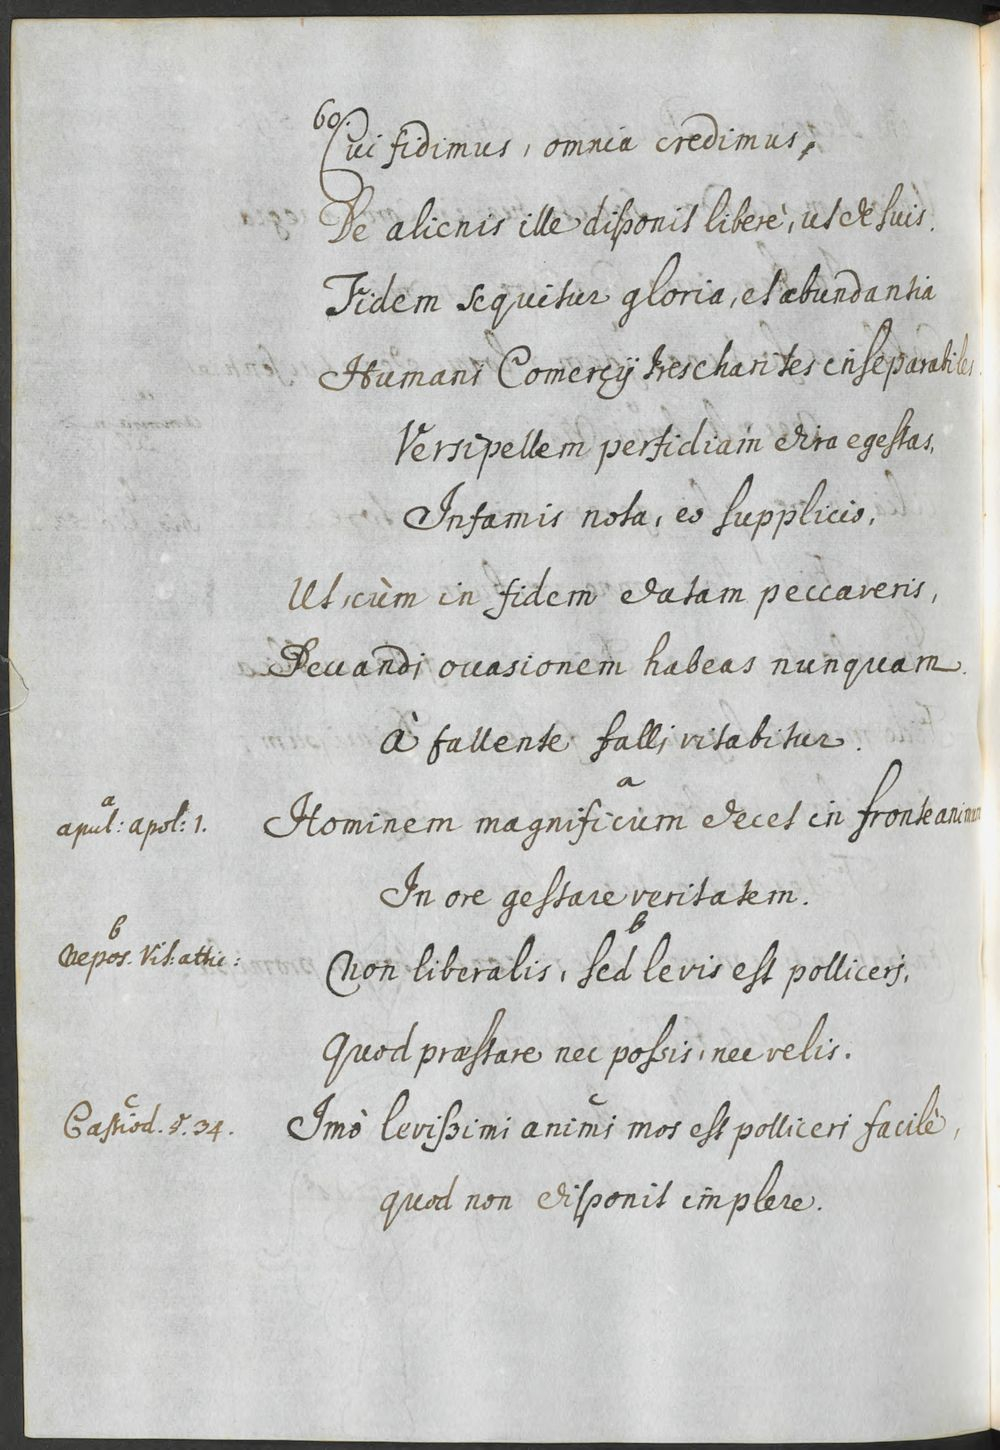 60.
Cui fidimus, omnia credimus,
De alienis ille disponit liberè, ut de suis.
Fidem sequitur gloria, et abundantia
Humani Comercij tres charites inseparabiles.
Versipellem perfidiam dira egestas,
Infamis nota, eo supplicio,
Ut, cùm in fidem datam peccaveris,
Peccandi occasionem habeas nunquam.
à fallente falli vitabitur.
a
apul: apol: 1. Hominem magnificum decet in fronte animum
In ore gestare veritatem.
b
Nepos. Vit: attic: Non liberalis, sed levis est polliceri,
Quod præstare nec possis, nec velis.
c
Cassiod. 5. 34. Imò levissimi animi mos est polliceri facilè,
quod non disponit implere.